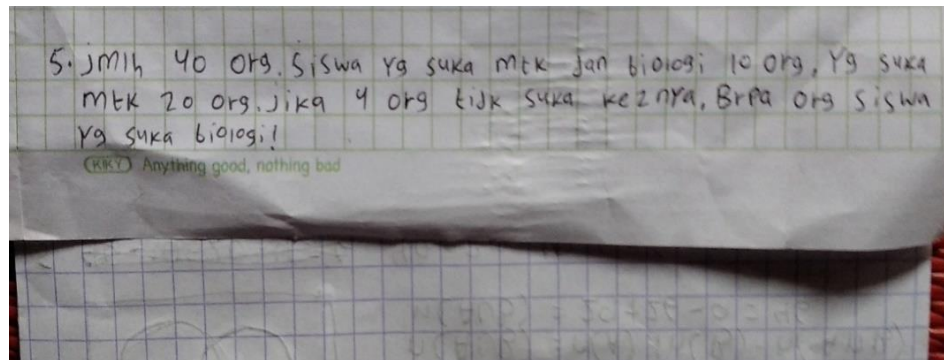 5. jmlh 40 org. Siswa yg suka mtk dan biologi 10 org, Yg suka
mtk 20 org. jika 4 org tidk suka ke2nya, Brpa org siswa
yg suka biologi!
KIKY Anything good, nothing bad